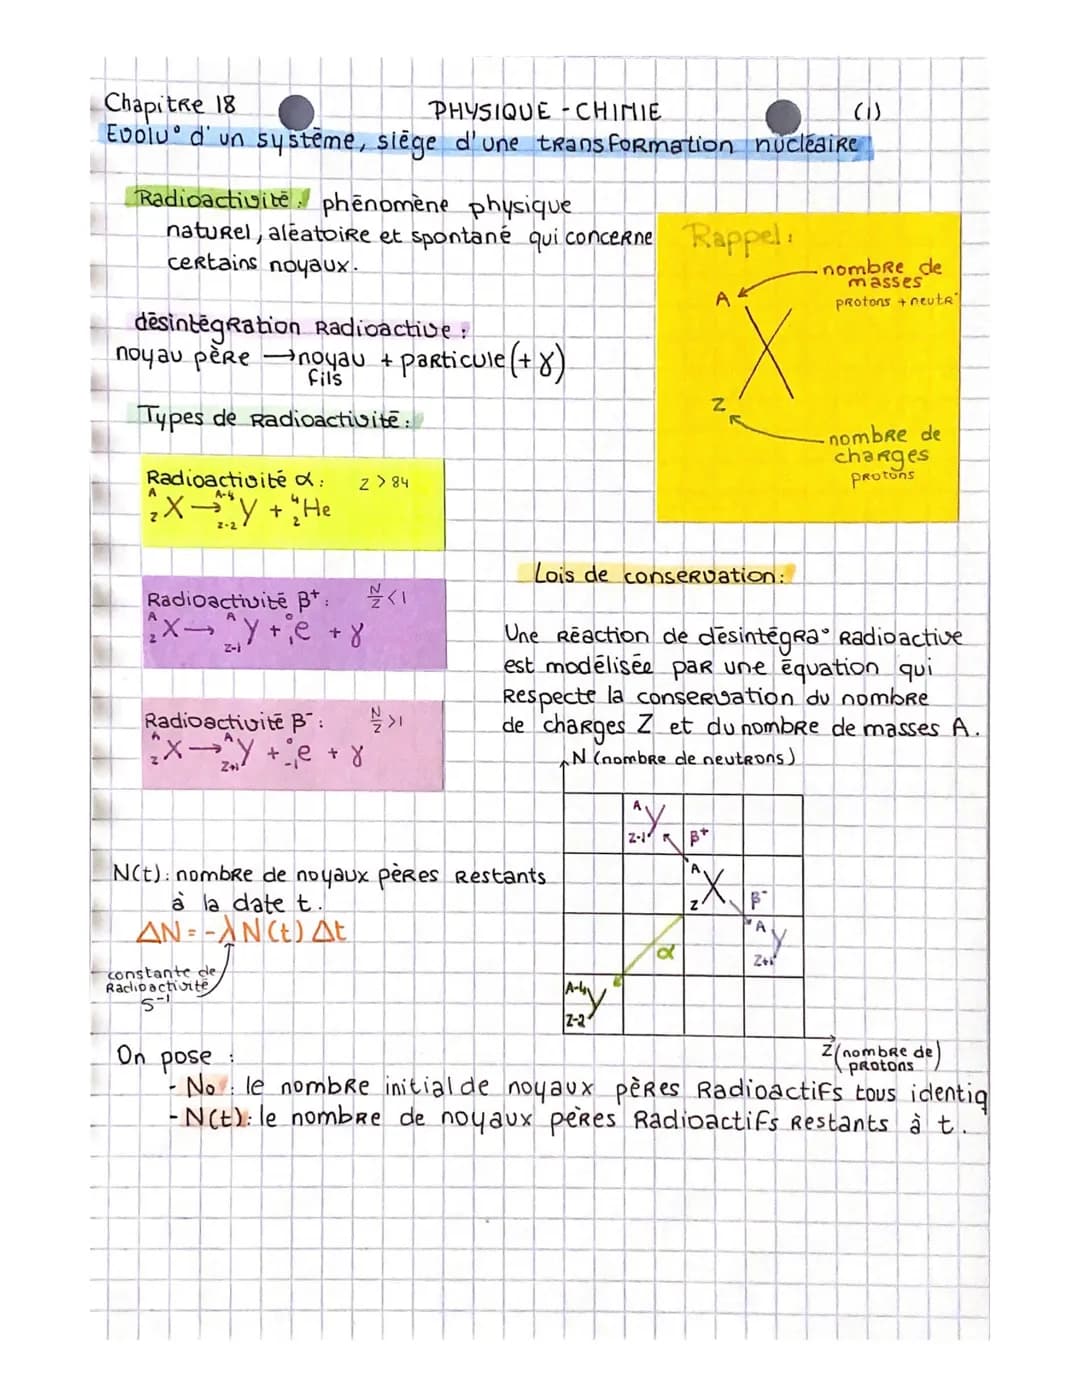 Chapitre 18 PHYSIQUE - CHIMIE (1)
Evolu° d'un système, siège d'une transformation nucléaire
Radioactivité : phénomène physique
naturel, aléatoire et spontané qui concerne
certains noyaux.
Rappel :
nombre de
masses
protons + neutr°
A
X
Z
nombre de
charges
protons
désintégration Radioactive :
noyau père → noyau + particule (+ γ)
fils
Types de Radioactivité :
Radioactivité α : Z > 84
᾿A/Z X → A-4/Z-2 Y + 4/2 He
Radioactivité β+ : N/Z < 1
A/Z X → A/Z-1 Y + 0/1 e + γ
Radioactivité β- : N/Z > 1
A/Z X → A/Z+1 Y + 0/-1 e + γ
Lois de conservation :
Une Réaction de désintégra° Radioactive
est modélisée par une équation qui
Respecte la conservation du nombre
de charges Z et du nombre de masses A.
N (nombre de neutrons)
A/Z-1 Y β+
A/Z X β-
A/Z+1 Y
α
A-4/Z-2 Y
Z (nombre de protons)
N(t) : nombre de noyaux pères Restants
à la date t.
ΔN = -λ N(t) Δt
constante de
Radioactivité
s-1
On pose :
- No : le nombre initial de noyaux pères Radioactifs tous identiq
- N(t) : le nombre de noyaux pères Radioactifs Restants à t.